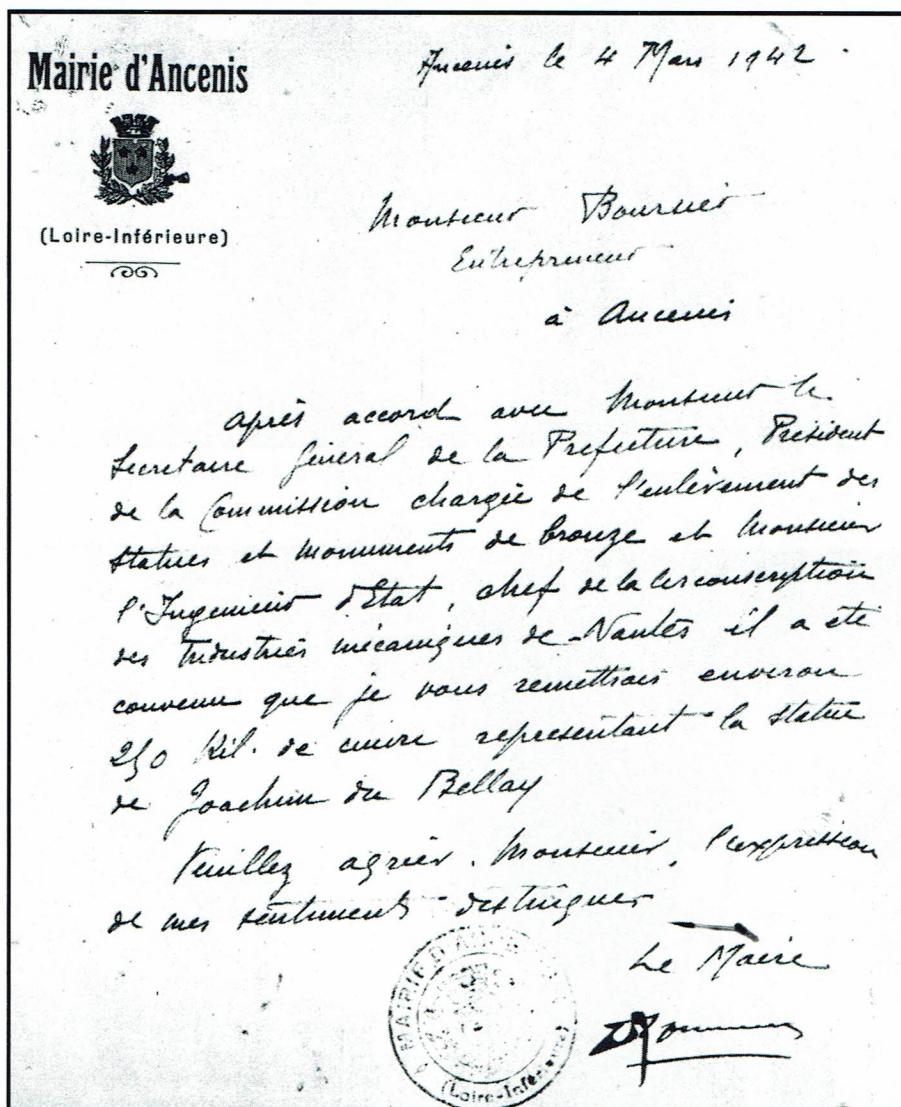 Mairie d'Ancenis
(Loire-Inférieure)
Ancenis le 4 Mars 1942.
Monsieur Boursier
Entrepreneur
à Ancenis
Après accord avec Monsieur le
Secretaire Général de la Prefecture, Président
de la Commission chargée de l'enlèvement des
statues et monuments de bronze et Monsieur
l'Ingenieur d'Etat, chef de la Circonscription
des Industries mécaniques de Nantes il a été
convenu que je vous remettrais environ
250 Kil. de cuivre representant la statue
de Joachim du Bellay
Veuillez agréer, Monsieur, l'expression
de mes sentiments distingués
Le Maire
MAIRIE D'ANCENIS
(Loire-Infére)